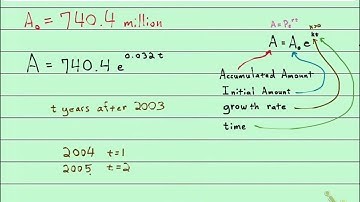 A₀ = 740.4 million
A = 740.4 e^0.032t
t years after 2003
2004 t=1
2005 t=2
A = Pe^rt
k>0
A = A₀ e^kt
Accumulated Amount
Initial Amount
growth rate
time